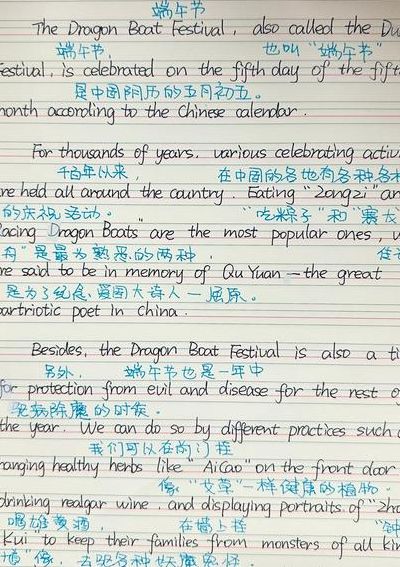 端午节
The Dragon Boat Festival, also called the Du
端午节 也叫“端午节”
estival, is celebrated on the fifth day of the fift
是中国阴历的五月初五。
month according to the Chinese calendar.
For thousands of years, various celebrating activi
千百年以来, 在中国的各地有各种各样
re held all around the country. Eating "Zongzi" an
的庆祝活动。 “吃粽子”和“赛龙
Racing Dragon Boats" are the most popular ones, w
舟”是最为熟悉的两种,
re said to be in memory of Qu Yuan — the great
是为了纪念爱国大诗人—屈原。
partriotic poet in China.
Besides, the Dragon Boat Festival is also a ti
另外, 端午节也是一年中
for protection from evil and disease for the rest o
免病除魔的时候。
the year. We can do so by different practices such
我们可以在前门挂
hanging healthy herbs like "AiCao" on the front door
像“艾草”一样健康的植物。
drinking realgar wine, and displaying portraits of "Zho
喝雄黄酒, 在墙上挂 “钟
Kui" to keep their families from monsters of all kin
馗”像,去驱各种妖魔鬼怪。